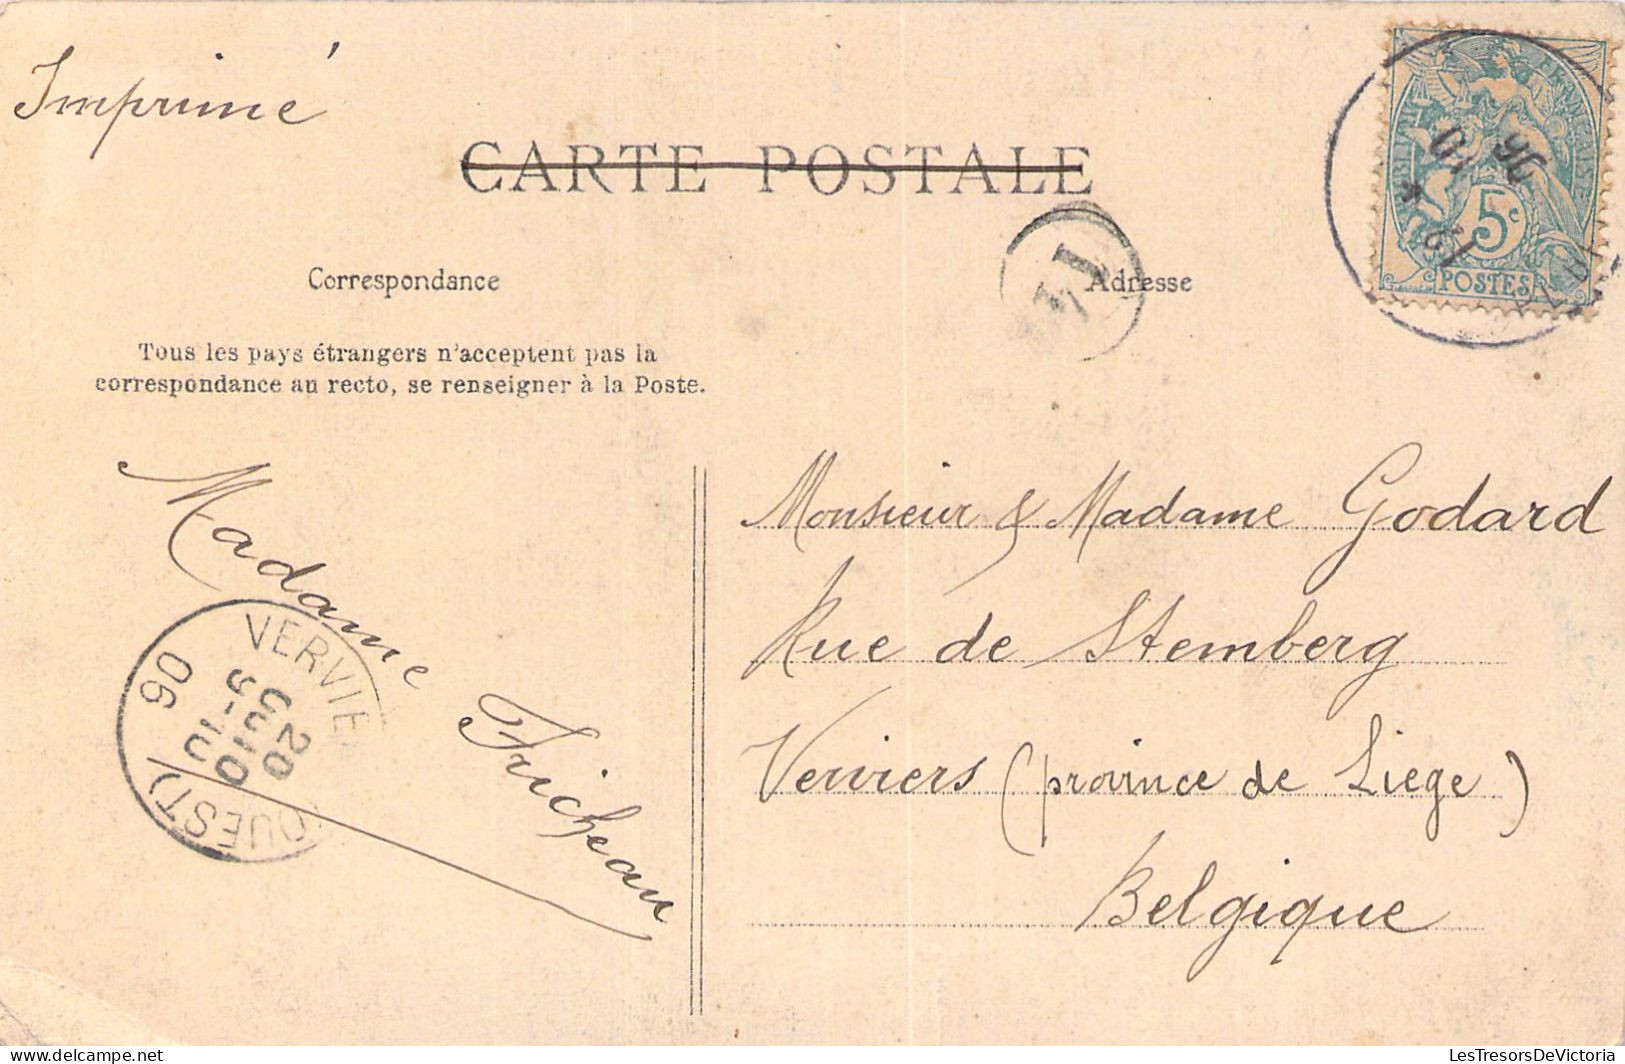 Imprimé
CARTE POSTALE
Correspondance
Adresse
Tous les pays étrangers n'acceptent pas la
correspondance au recto, se renseigner à la Poste.
FRANÇAISE
5c
POSTES
Madame Fricheau
VERVIE
20
OUEST)
06
Monsieur & Madame Godard
Rue de Stemberg
Verviers (province de Liège)
Belgique
delcampe.net
LesTresorsDeVictoria